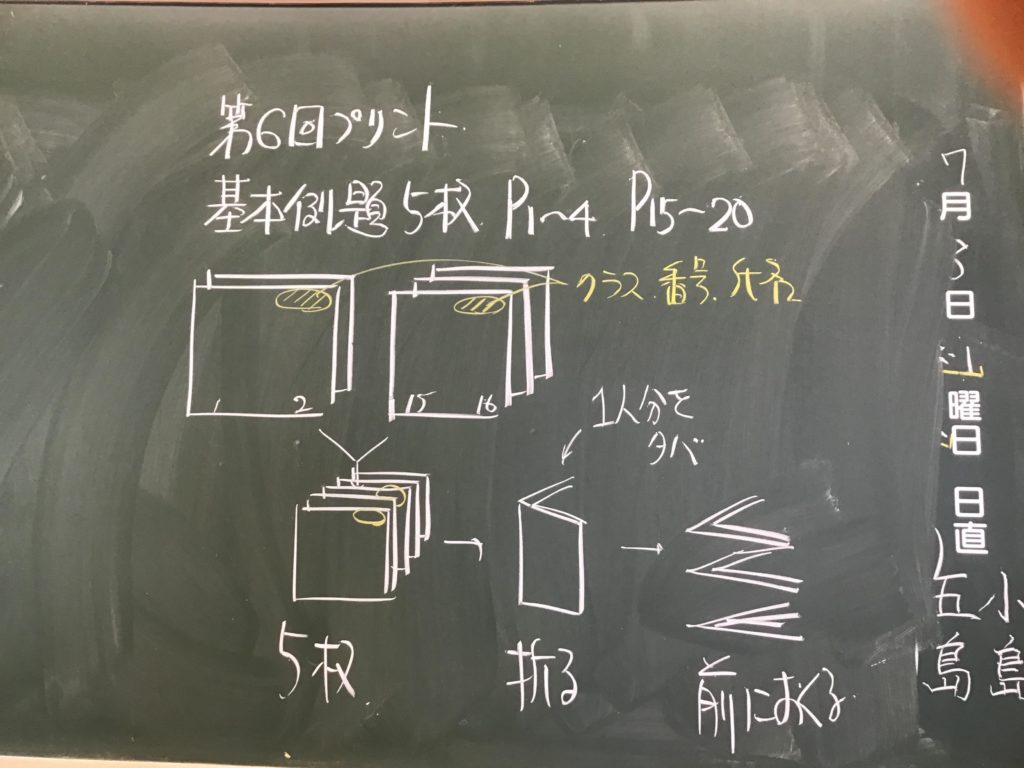 第6回プリント
基本例題 5枚 P1〜4 P15〜20
クラス.番号.氏名
1 2
15 16
1人分を
タバ
5枚
折る
前におくる
7月3日
土曜日 日直
小島
五島